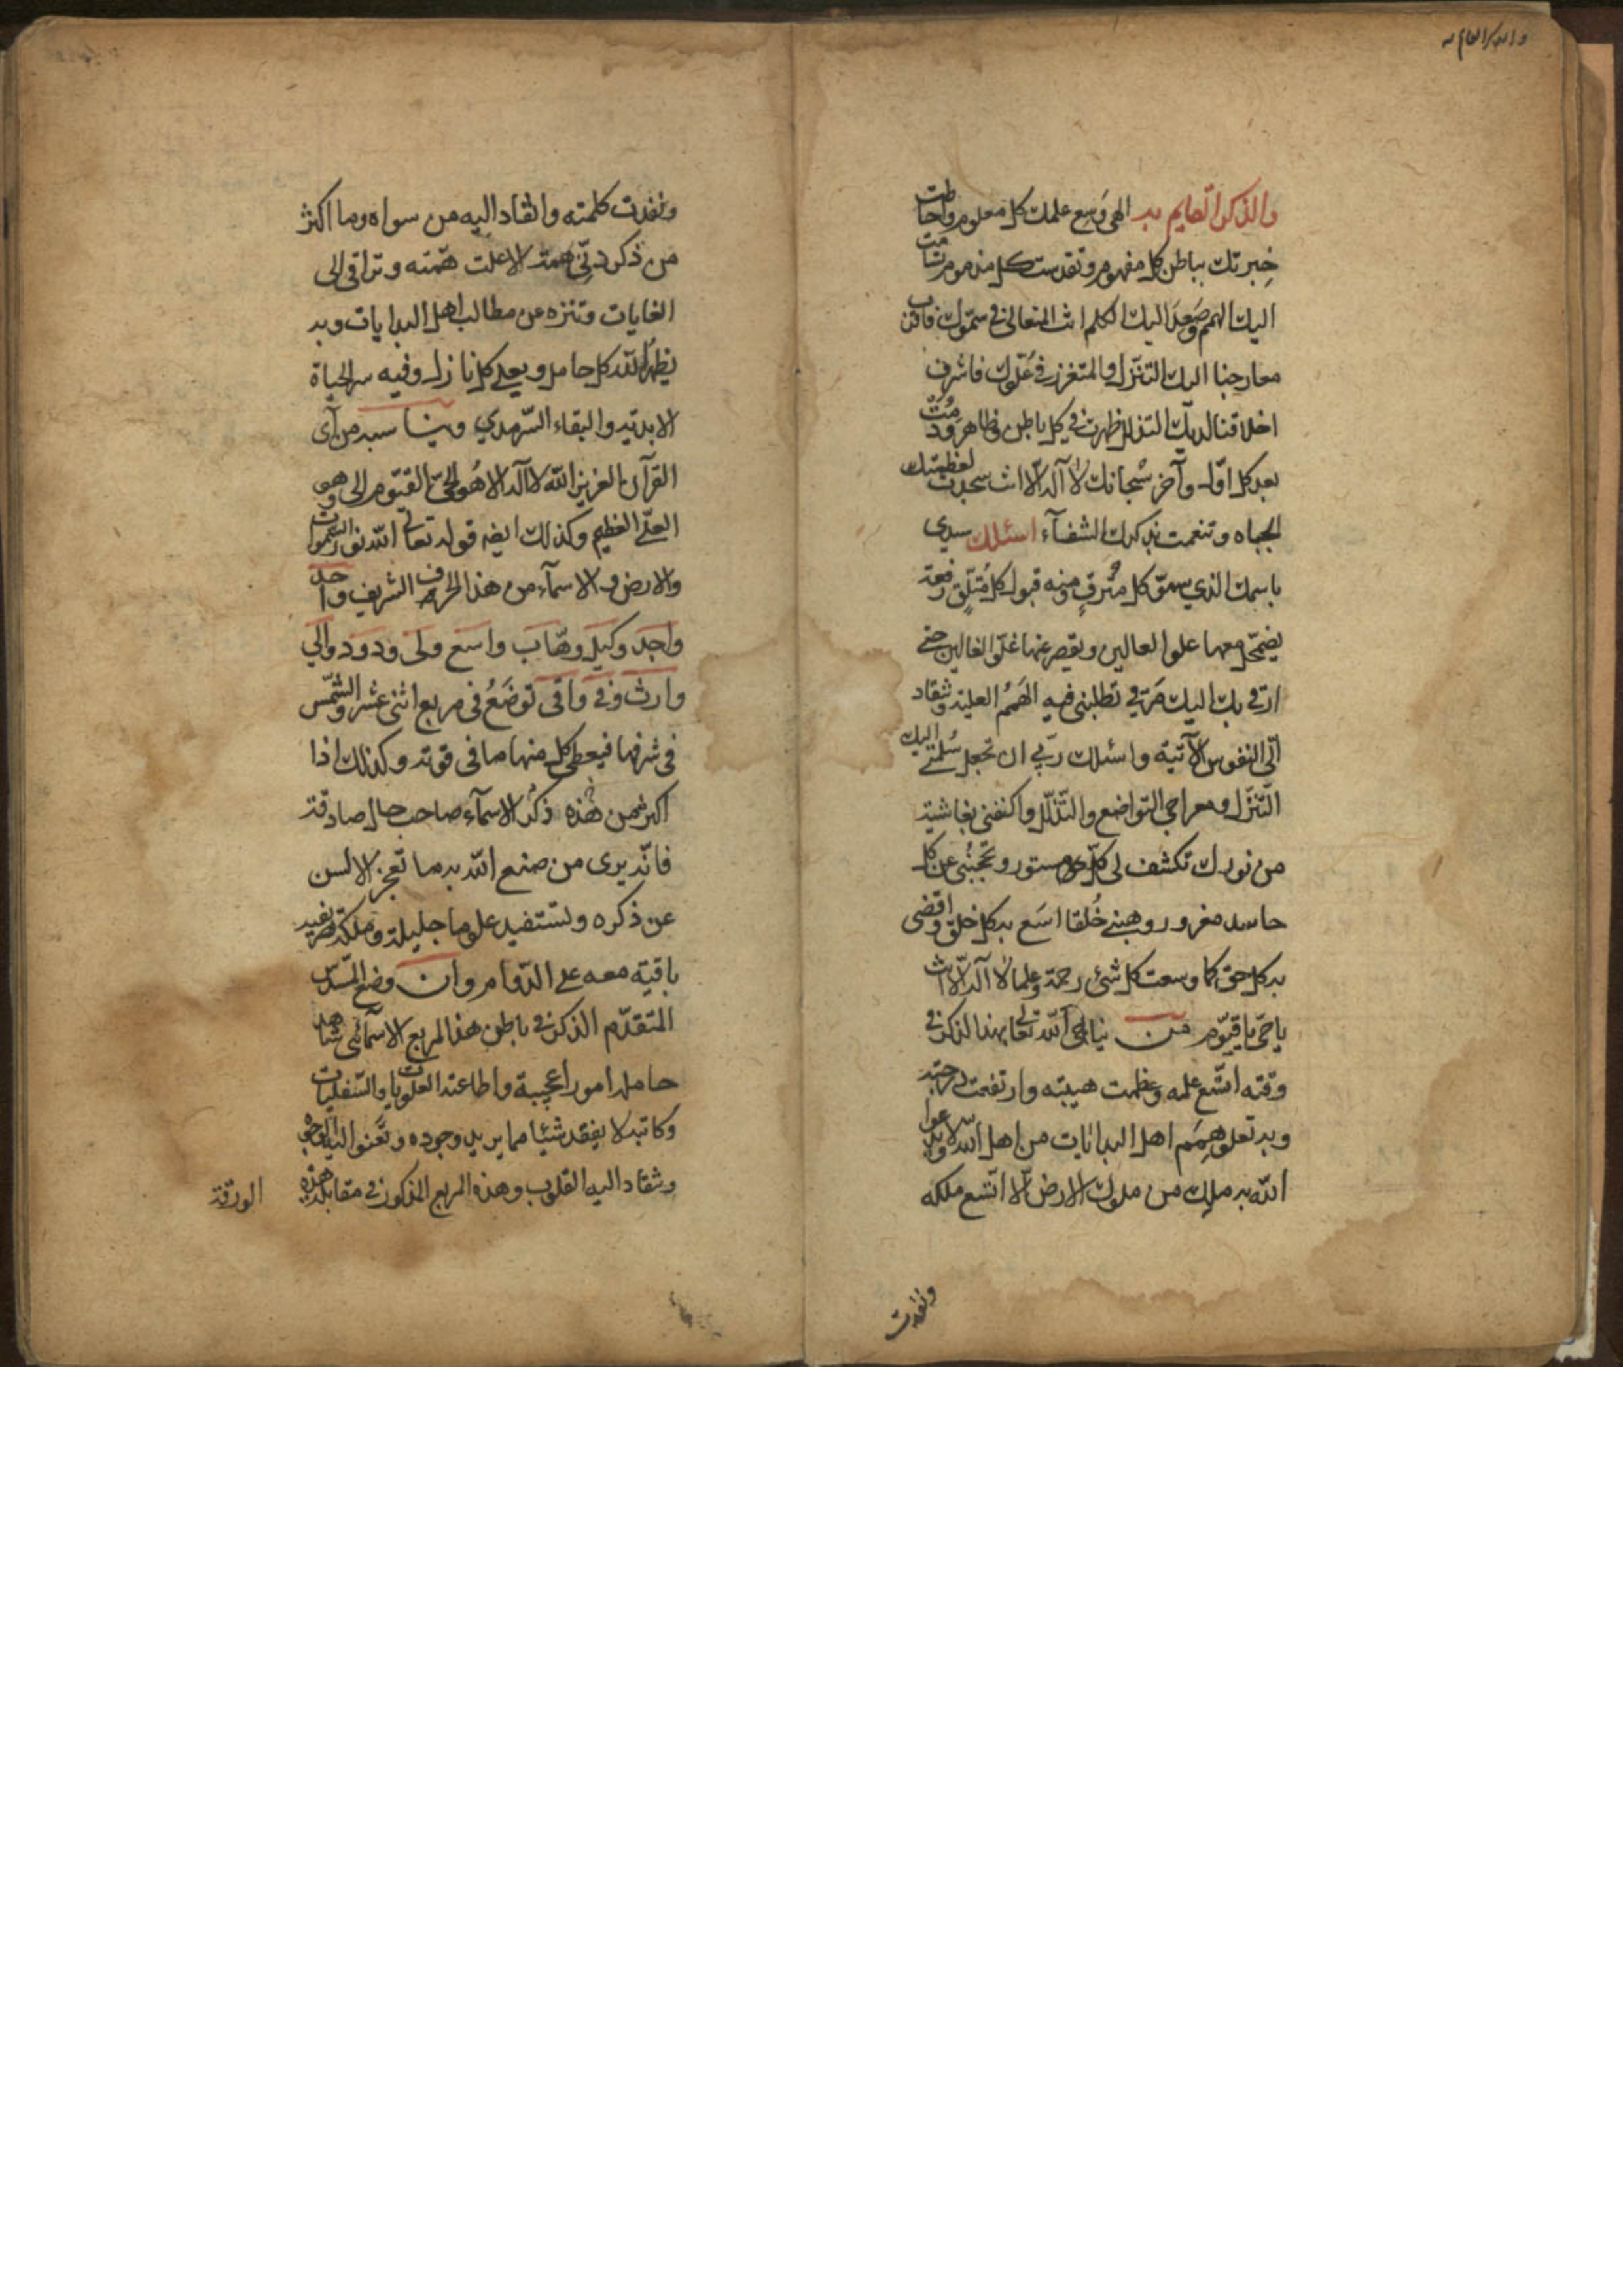 والذكر القايم به
والذكر القايم به الهي وسع علمك كل معلوم واحاطت
خبرتك بباطن كل مفهوم وتقدست كل مذموم تسامت
اليك الهمم وصعد اليك الكلم انت المتعالي في سموك فاقرب
معارجنا اليك التنزل والمتعزز في علوك فاشرف
اخلاقنا لديك التذلل ظهرت في كل باطن وظاهر ودمت
بعد كل اول وآخر سبحانك لا آله الا انت سجدت لعظمتك
الجباه وتنعمت بذكرك الشفآء اسئلك سيدي
باسمك الذي سمق كل مترق ومنه قبول كل متلق رفعة
يضمحل معها علو العالين ويقصر عنها غلو الغالين حتى
ارقي بك اليك مرقي تطلبني فيه الهمم العلية وتنقاد
الي النفوس الآتية واسئلك ربي ان تجعل سلمي اليك
التنزل ومعراجي التواضع والتذلل واكنفني بغاشية
من نورك تكشف لي كل مستور وتحجبني عن كل
حاسد مغرور وهبني خلقا اسع به كل خلق واقضى
به كل حق كما وسعت كل شئ رحمة وعلما لا آله الا انت
ياحي ياقيوم من يناجي الله تعالى بهذا الذكر في
وقته اتسع علمه وعظمت هيبته وارتفعت درجته
وبه تعلو همم اهل البدايات من اهل الله ولا يدعوا
الله به ملك من ملوك الارض الا اتسع ملكه
ونفذت
ونفذت كلمته وانقاد اليه من سواه وما اكثر
من ذكر دني همة الا علت همته وتراقى الى
الغايات وتنزه عن مطالب اهل البدايات وبه
يظهر الله كل حامل ويعلي كل نازل وفيه سر الحياة
الابدية والبقاء السرمدي ويناسبه من آى
القرآن العزيز الله لا آله الا هو الحي القيوم الى وهو
العلي العظيم وكذلك ايضه قوله تعالى الله نور السموات
والارض والاسمآء من هذا الحرف الشريف واحد
واجد وكيل وهاب واسع ولى ودود والي
وارث وفي واقى توضع في مربع اثني عشر والشمس
في شرفها فيعطي كل منها ما في قوته وكذلك اذا
اكثر من هذه ذكر الاسمآء صاحب حال صادقة
فانه يرى من صنع الله به ما تعجز الالسن
عن ذكره ولتستفيد علوما جليلة وملكة
باقية معه على الدوام وان وضع المسدس
المتقدم الذكر في باطن هذا المربع الاسمآئي شاهد
حامله امورا عجيبة واطاعته العلويات والسفليات
وكاتبه لا يفقد شيئا مما يريد وجوده وتعنو اليه الوجوه
وتنقاد اليه القلوب وهذه المربع المذكور في مقابلة هذه
الورقة